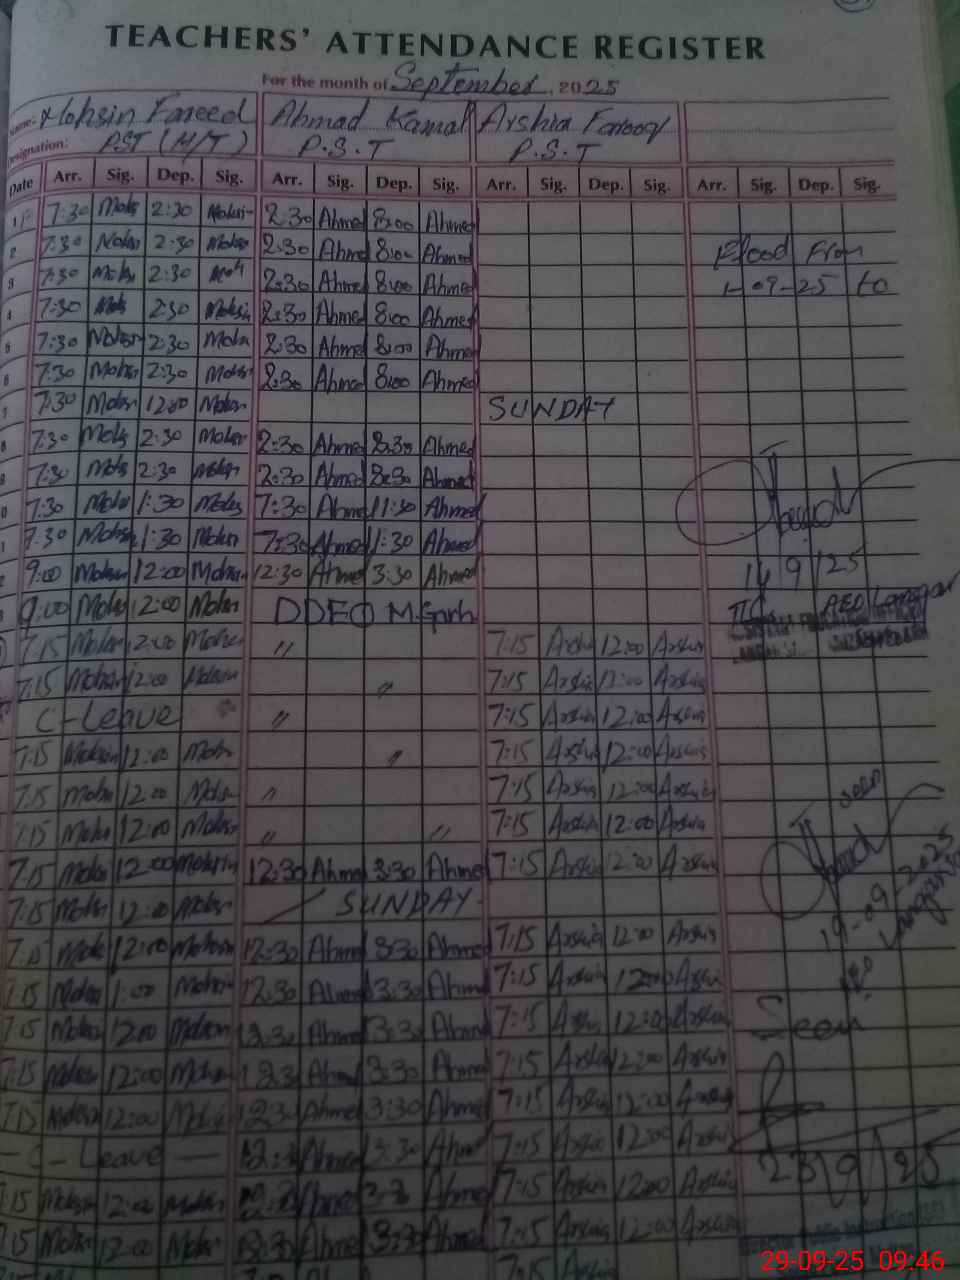 TEACHERS' ATTENDANCE REGISTER
For the month of September, 2025
Name:- Mohsin Fareed Ahmad Kamal Arshia Farooq
Designation: PST (M/T) P.S.T P.S.T
Date Arr. Sig. Dep. Sig. Arr. Sig. Dep. Sig. Arr. Sig. Dep. Sig. Arr. Sig. Dep. Sig.
1 7:30 Mohs 2:30 Mohsin 2:30 Ahmed 8:00 Ahmed
2 7:30 Mohsn 2:30 Mohsn 2:30 Ahmed 8:00 Ahmed Flood From
3 7:30 Mohsn 2:30 Moh 2:30 Ahmed 8:00 Ahmed 1-09-25 to
4 7:30 Moh 2:30 Mohsin 2:30 Ahmed 8:00 Ahmed
5 7:30 Mohsn 2:30 Mohsn 2:30 Ahmed 8:00 Ahmed
6 7:30 Mohsn 2:30 Mohsn 2:30 Ahmed 8:00 Ahmed
7 7:30 Mohsn 12:00 Mohsn SUNDAY
8 7:30 Mohs 2:30 Mohsn 2:30 Ahmed 8:30 Ahmed
7:30 Mohs 2:30 Mohsn 2:30 Ahmed 8:30 Ahmed
0 7:30 Mohsn 1:30 Mohs 7:30 Ahmed 11:30 Ahmed
7:30 Mohsn 1:30 Mohsn 7:30 Ahmed 1:30 Ahmed
2 9:00 Mohsn 12:00 Mohsn 12:30 Ahmed 3:30 Ahmed 14/9/25
9:00 Mohs 12:00 Mohsn DDEO M.Garh AEO Langar
7:15 Mohsn 12:00 Mohsn " 7:15 Arshi 12:00 Arshia
7:15 Mohsn 12:00 Mohsin " 7:15 Arshia 12:00 Arshia
C-Leave " 7:15 Arshia 12:00 Arshia
7:15 Mohsin 12:00 Mohsn " 7:15 Arshia 12:00 Arshia
7:15 Mohsn 12:00 Mohsn " 7:15 Arshia 12:00 Arshia seen
7:15 Mohsn 12:00 Mohsn " " 7:15 Arshia 12:00 Arshia
7:15 Mohsn 12:00 Mohsin 12:30 Ahmed 3:30 Ahmed 7:15 Arshia 12:00 Arshia
7:15 Mohsn 12:00 Mohsn SUNDAY 19-09-2025
7:15 Mohs 12:00 Mohsin 12:30 Ahmed 3:30 Ahmed 7:15 Arshia 12:00 Arshia
7:15 Mohsn 1:00 Mohsn 12:30 Ahmed 3:30 Ahmed 7:15 Arshia 12:00 Arshia
7:15 Mohsn 12:00 Mohsn 12:30 Ahmed 3:30 Ahmed 7:15 Arshia 12:00 Arshia Seen
7:15 Mohsn 12:00 Mohsn 12:30 Ahmed 3:30 Ahmed 7:15 Arshia 12:00 Arshia
7:15 Mohsn 12:00 Mohsin 12:30 Ahmed 3:30 Ahmed 7:15 Arshia 12:00 Arshia
- C - Leave - Ahmed 3:30 Ahmed 7:15 Arshia 12:00 Arshia
7:15 Mohsin 12:00 Mohsn Ahmed Ahmed 7:15 Arshia 12:00 Arshia 23/9/25
7:15 Mohsn 12:00 Mohsn 12:30 Ahmed 3:30 Ahmed 7:15 Arshia 12:00 Arshia
7:15 Arshia
29-09-25 09:46